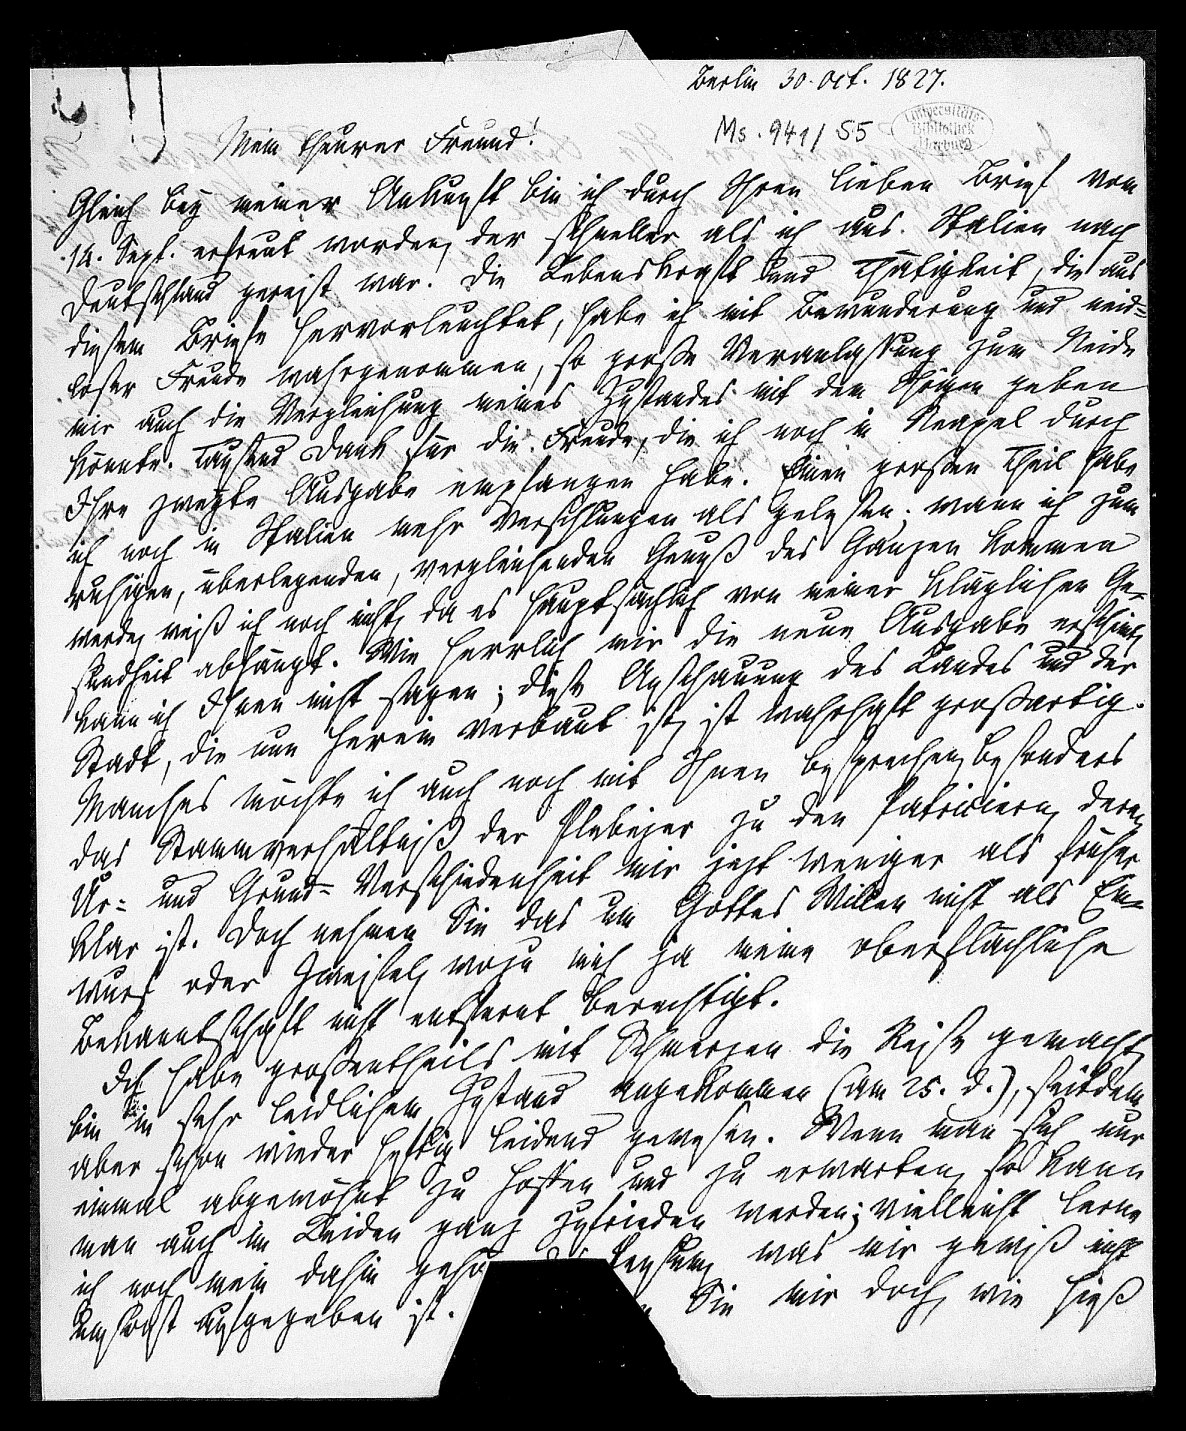 Berlin 30. Oct. 1827.
Ms. 941/55
Universitäts-
Bibliothek
Marburg
Mein theurer Freund!
Gleich bey meiner Ankunft bin ich durch Ihren lieben Brief vom
14. Sept. erfreut worden, der schneller als ich aus Italien nach
Deutschland gereist war. Die Lebenskraft und Thätigkeit, die aus
diesem Briefe hervorleuchtet, habe ich mit Bewunderung und neid-
loser Freude wahrgenommen, so große Veranlassung zum Neide
mir auch die Vergleichung meines Zustandes mit dem Ihrigen geben
könnte. Tausend Dank für die Freude, die ich noch in Neapel durch
Ihre zweyte Ausgabe empfangen habe. Einen großen Theil habe
ich noch in Italien mehr verschlungen als gelesen; wann ich zum
ruhigen, überlegenden, vergleichenden Genuß des Ganzen kommen
werde, weiß ich noch nicht, da es hauptsächlich von meiner kläglichen Ge-
sundheit abhängt. Wie herrlich mir die neue Ausgabe erscheint,
kann ich Ihnen nicht sagen; diese Anschauung des Landes und der
Stadt, die nun herein verbaut ist, ist wahrhaft großartig.
Manches möchte ich auch noch mit Ihnen besprechen, besonders
das Stammverhältniß der Plebejer zu den Patriciern, deren
Ur- und Grund-Verschiedenheit mir jezt weniger als früher
klar ist. Doch nehmen Sie das um Gottes Willen nicht als Ein-
wurf oder Zweifel, wozu mich ja meine oberflächliche
Bekanntschaft nicht entfernt berechtigt.
Ich habe großentheils mit Schmerzen die Reise gemacht,
bin in sehr leidlichem Zustand angekommen (am 25. d.), seitdem
aber schon wieder heftig leidend gewesen. Wenn man sich nur
einmal abgewöhnt zu hoffen und zu erwarten, so kann
man auch im Leiden ganz zufrieden werden; vielleicht lerne
ich noch mein dahin Pensum, was mir gewiß nicht
umsonst aufgegeben ist. Sie mir doch, wie hieß